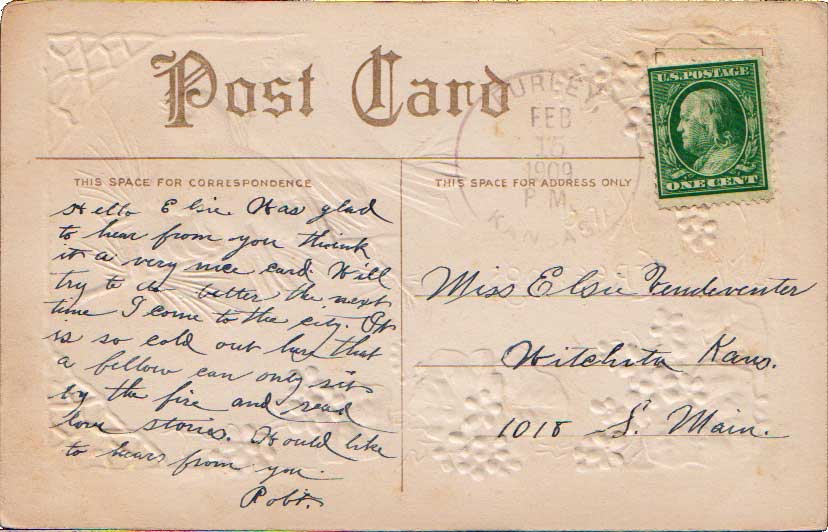 Post Card
FEB
1909
P.M.
U.S. POSTAGE
ONE CENT
THIS SPACE FOR CORRESPONDENCE
THIS SPACE FOR ADDRESS ONLY
Hello Elsie. Was glad
to hear from you think
it a very nice card. Will
try to do better the next
time I come to the city. It
is so cold out here that
a fellow can only sit
by the fire and read
love stories. Would like
to hear from you.
Robt.
Miss Elsie Vendeventer
Witchita Kans.
1018 S. Main.